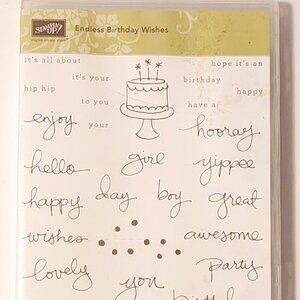 STAMPIN' UP!
Endless Birthday Wishes
it's all about
hope it's an
it's your
birthday
hip hip
happy
to you
have a
enjoy
your
hooray
hello
girl
yippee
happy
day
boy
great
wishes
awesome
lovely
you
party